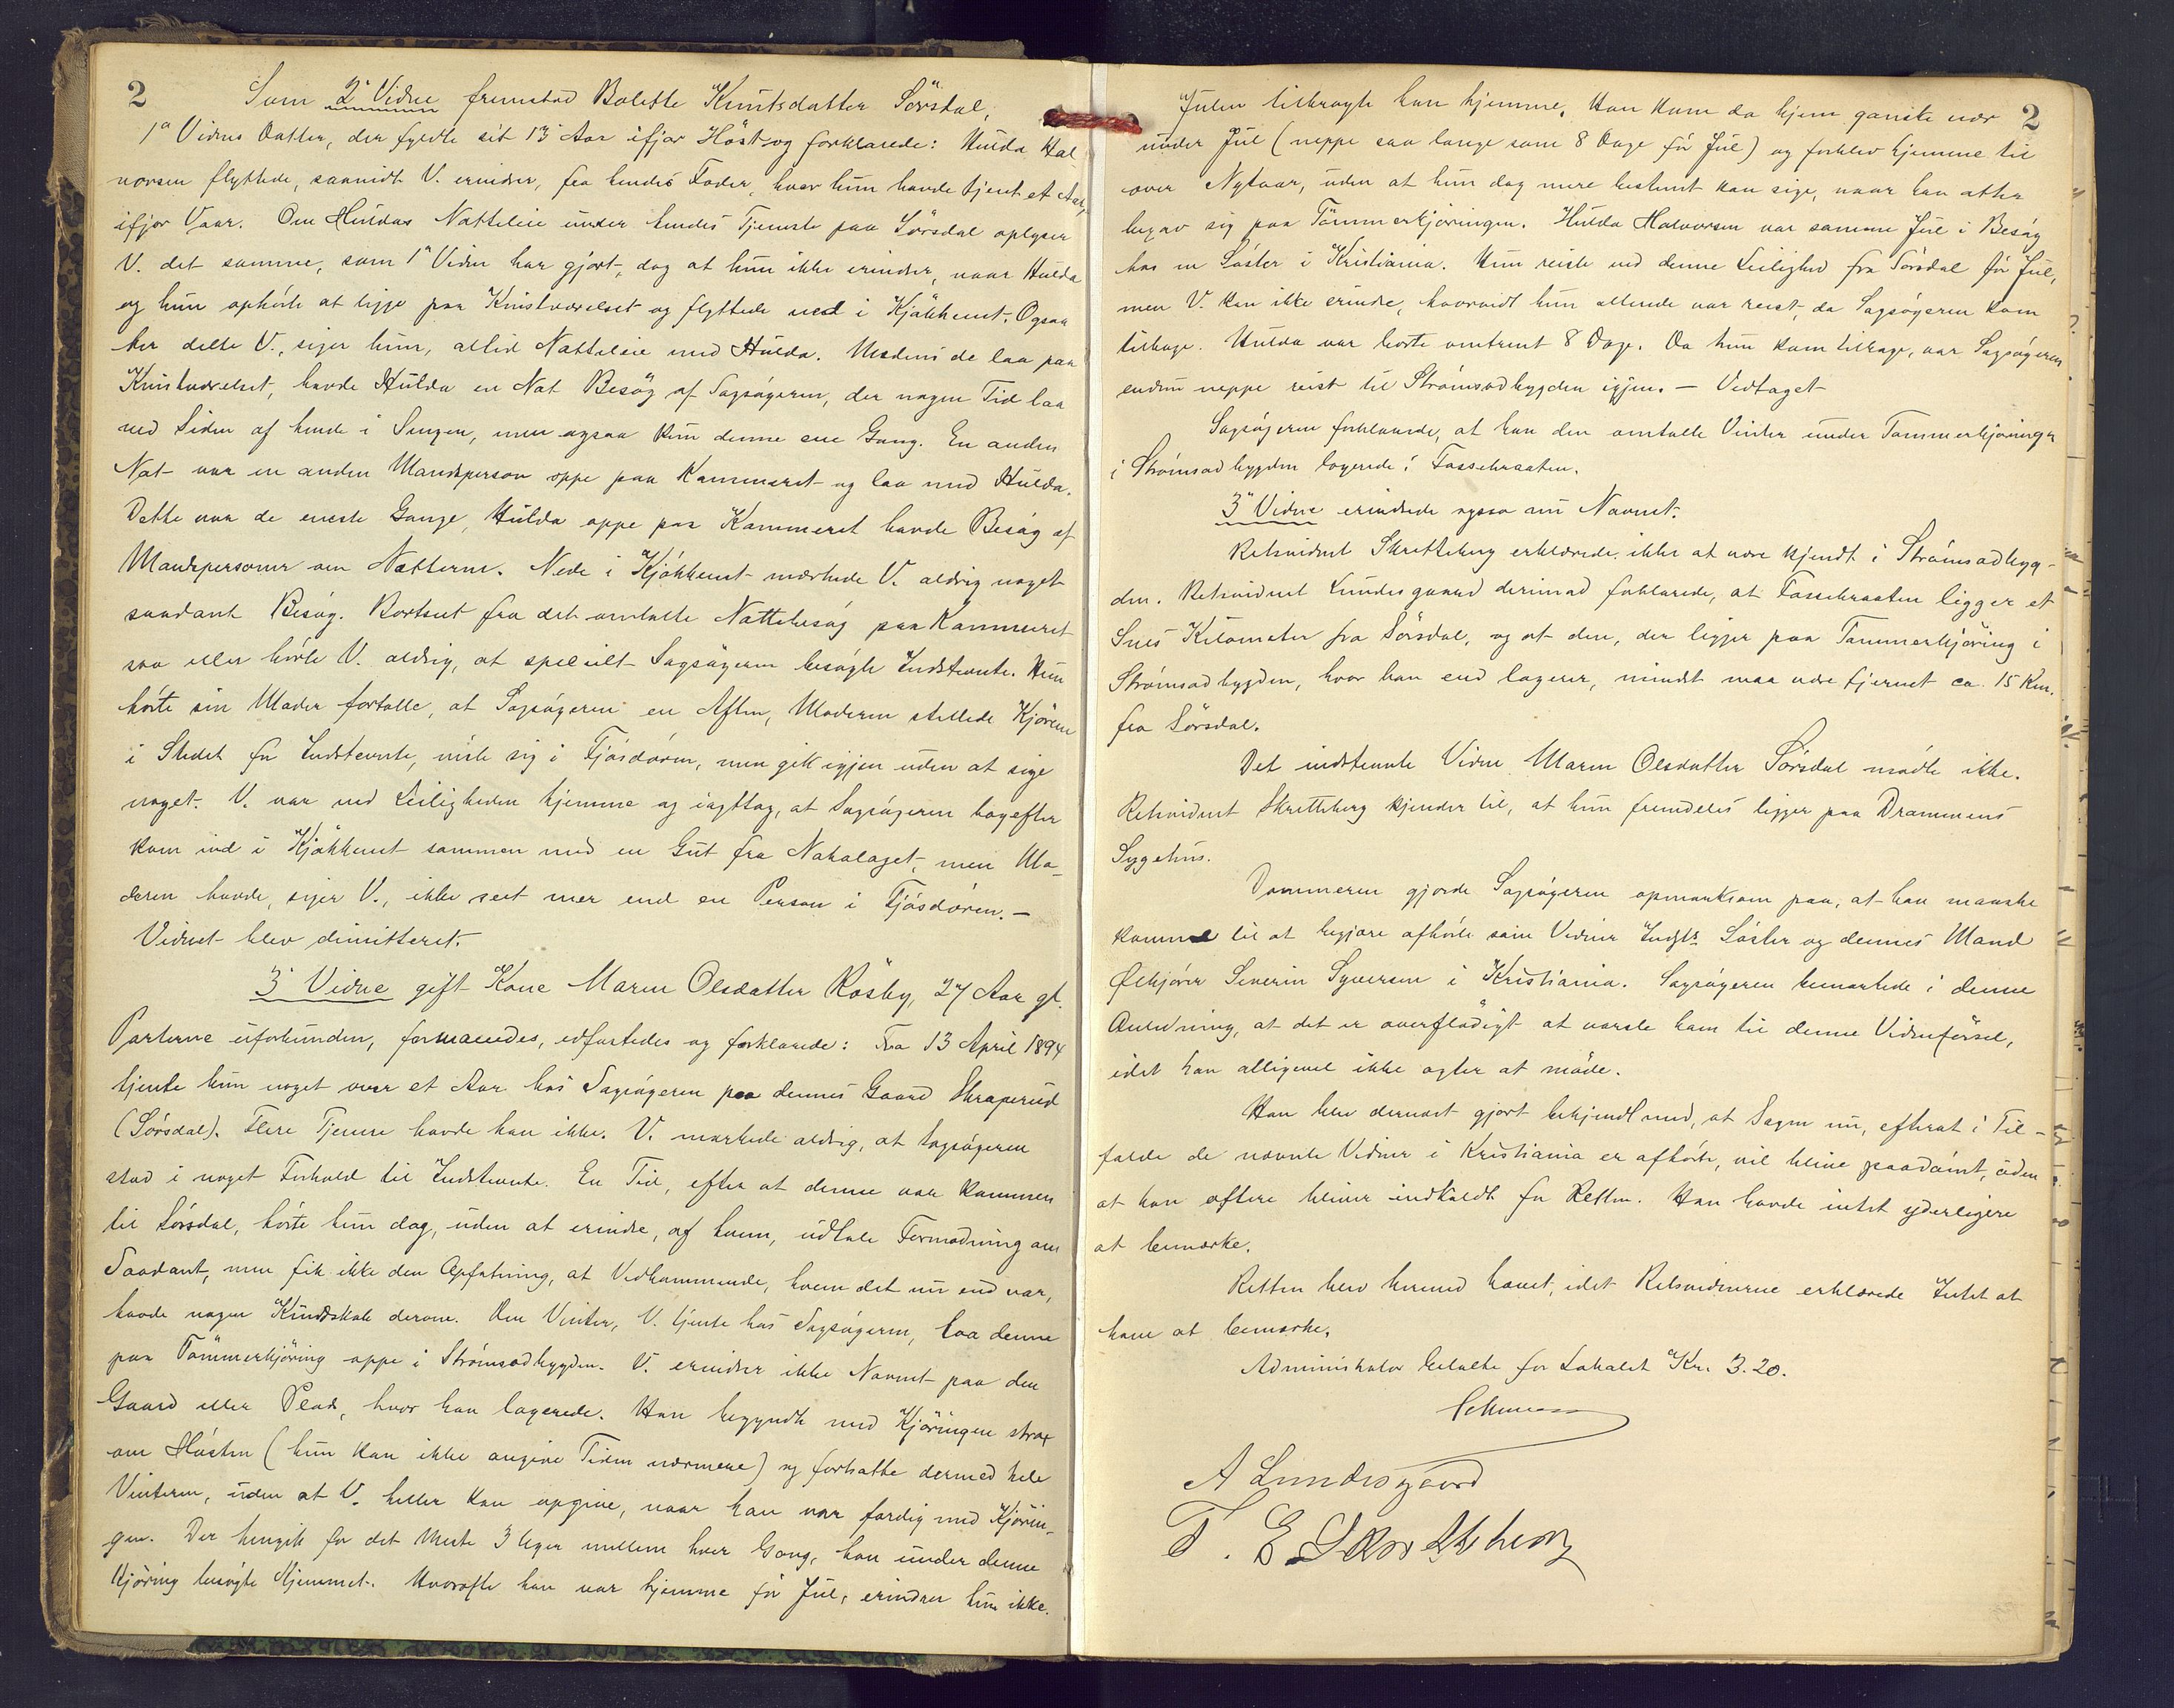 2
Som 2' Vidne fremstod Bolette Knutsdatter Sörsdal,
1' Vidnes Datter, der fyldte sit 13' Aar ifjor Höst og forklarede: Hulda Hal
vorsen flyttede, saavidt V. erindrer, fra hendes Fader, hvor hun havde tjent et Aar,
ifjor Vaar. Om Huldas Natteleie under hendes Tjeneste paa Sörsdal oplyser
V. det samme, som 1' Vidne har gjort, dog at hun ikke erindrer, naar Hulda
og hun ophörte at ligge paa Kvistværelset og flyttede ned i Kjökkenet. Ogsaa
her delte V., siger hun, altid Natteleie med Hulda. Medens de laa paa
Kvistværelset, havde Hulda en Nat Besög af Sagsögeren, der nogen Tid laa
ved Siden af hende i Sengen, men ogsaa kun denne ene Gang. En anden
Nat var en anden Mandsperson oppe paa Kammeret og laa med Hulda.
Dette var de eneste Gange, Hulda oppe paa Kammeret havde Besög af
Mandspersoner om Nætterne. Nede i Kjökkenet mærkede V. aldrig noget
saadant Besög. Bortset fra det omtalte Nattebesög paa Kammeret
saa eller hörte V. aldrig, at specielt Sagsögeren besögte Indstevnte. Hun
hörte sin Moder fortælle, at Sagsögeren en Aften, Moderen stellede Kjörene
i Stedet for Indstevnte, viste sig i Fjösdören, men gik igjen uden at sige
noget. V. var ved Leiligheden hjemme og iagttog, at Sagsögeren bagefter
kom ind i Kjökkenet sammen med en Gut fra Nabolaget, men Mo-
deren havde, siger V., ikke seet mer end en Person i Fjösdören. —
Vidnet blev dimitteret.
3' Vidne gift Kone Maren Olsdatter Rösby, 27 Aar gl.
Parterne uforbunden, formanedes, edfæstedes og forklarede: Fra 13 April 1894
tjente hun noget over et Aar hos Sagsögeren paa dennes Gaard Skraperud
(Sörsdal). Flere Tjenere havde han ikke. V. mærkede aldrig, at Sagsögeren
stod i noget Forhold til Indstevnte. En Tid, efter at denne var kommen
til Sörsdal, hörte hun dog, uden at erindre, af hvem, udtale Formodning om
Saadant, men fik ikke den Opfatning, at Vedkommende, hvem det nu end var,
havde nogen Kundskab derom. Den Vinter, V. tjente hos Sagsögeren, laa denne
paa Tömmerkjöring oppe i Strömsodbygden. V. erindrer ikke Navnet paa den
Gaard eller Plads, hvor han logerede. Han begyndte med Kjöringen strax
om Hösten (hun kan ikke angive Tiden nærmere) og fortsatte dermed hele
Vinteren, uden at V. heller kan opgive, naar han var færdig med Kjörin-
gen. Der hengik for det Meste 3 Uger mellem hver Gang, han under denne
Kjöring besögte Hjemmet. Hvorofte han var hjemme för Jul, erindrer hun ikke.
2
Julen tilbragte han hjemme. Han kom da hjem ganske nær
under Jul (neppe saa længe som 8 Dage för Jul) og forblev hjemme til
over Nytaar, uden at hun dog mere bestemt kan sige, naar han atter
begav sig paa Tömmerkjöringen. Hulda Halvorsen var samme Jul i Besög
hos en Söster i Kristiania. Hun reiste ved denne Leilighed fra Sörsdal för Jul,
men V. kan ikke erindre, hvorvidt hun allerede var reist, da Sagsögeren kom
tilbage. Hulda var borte omtrent 8 Dage. Da hun kom tilbage, var Sagsögeren
endnu neppe reist til Strömsodbygden igjen. — Vedtaget
Sagsögeren forklarede, at han den omtalte Vinter under Tømmerkjöringen
i Strömsodbygden logerede i Fossebraaten.
3' Vidne erindrede ogsaa nu Navnet.
Retsvidnet Skretteberg erklærede ikke at være kjendt i Strömsodbyg-
den. Retsvidnet Lundesgaard derimod forklarede, at Fossebraaten ligger et
Snes Kilometer fra Sörsdal, og at den, der ligger paa Tømmerkjöring i
Strömsodbygden, hvor han end logerer, mindst maa være fjernet ca. 15 Km.
fra Sörsdal.
Det indstevnte Vidne Maren Olsdatter Sörsdal mödte ikke.
Retsvidnet Skretteberg kjender til, at hun fremdeles ligger paa Drammens
Sygehus.
Dommeren gjorde Sagsögeren opmærksom paa, at han maaske
kommer til at begjære afhörte som Vidner Indst. Söster og dennes Mand
Ølkjörer Severin Syversen i Kristiania. Sagsögeren bemærkede i denne
Anledning, at det er overflödigt at varsle ham til denne Vidneförsel,
idet han alligevel ikke agter at möde.
Han blev dernæst gjort bekjendt med, at Sagen nu, efterat i Til-
fælde de nævnte Vidner i Kristiania er afhörte, vil blive paadömt, uden
at han oftere bliver indkaldt for Retten. Han havde intet yderligere
at bemærke.
Retten blev hermed hævet, idet Retsvidnerne erklærede Intet at
have at bemærke.
Administrator betalte for Lokalet Kr. 3.20.
A Lundesgaard
T. E. Skretteberg